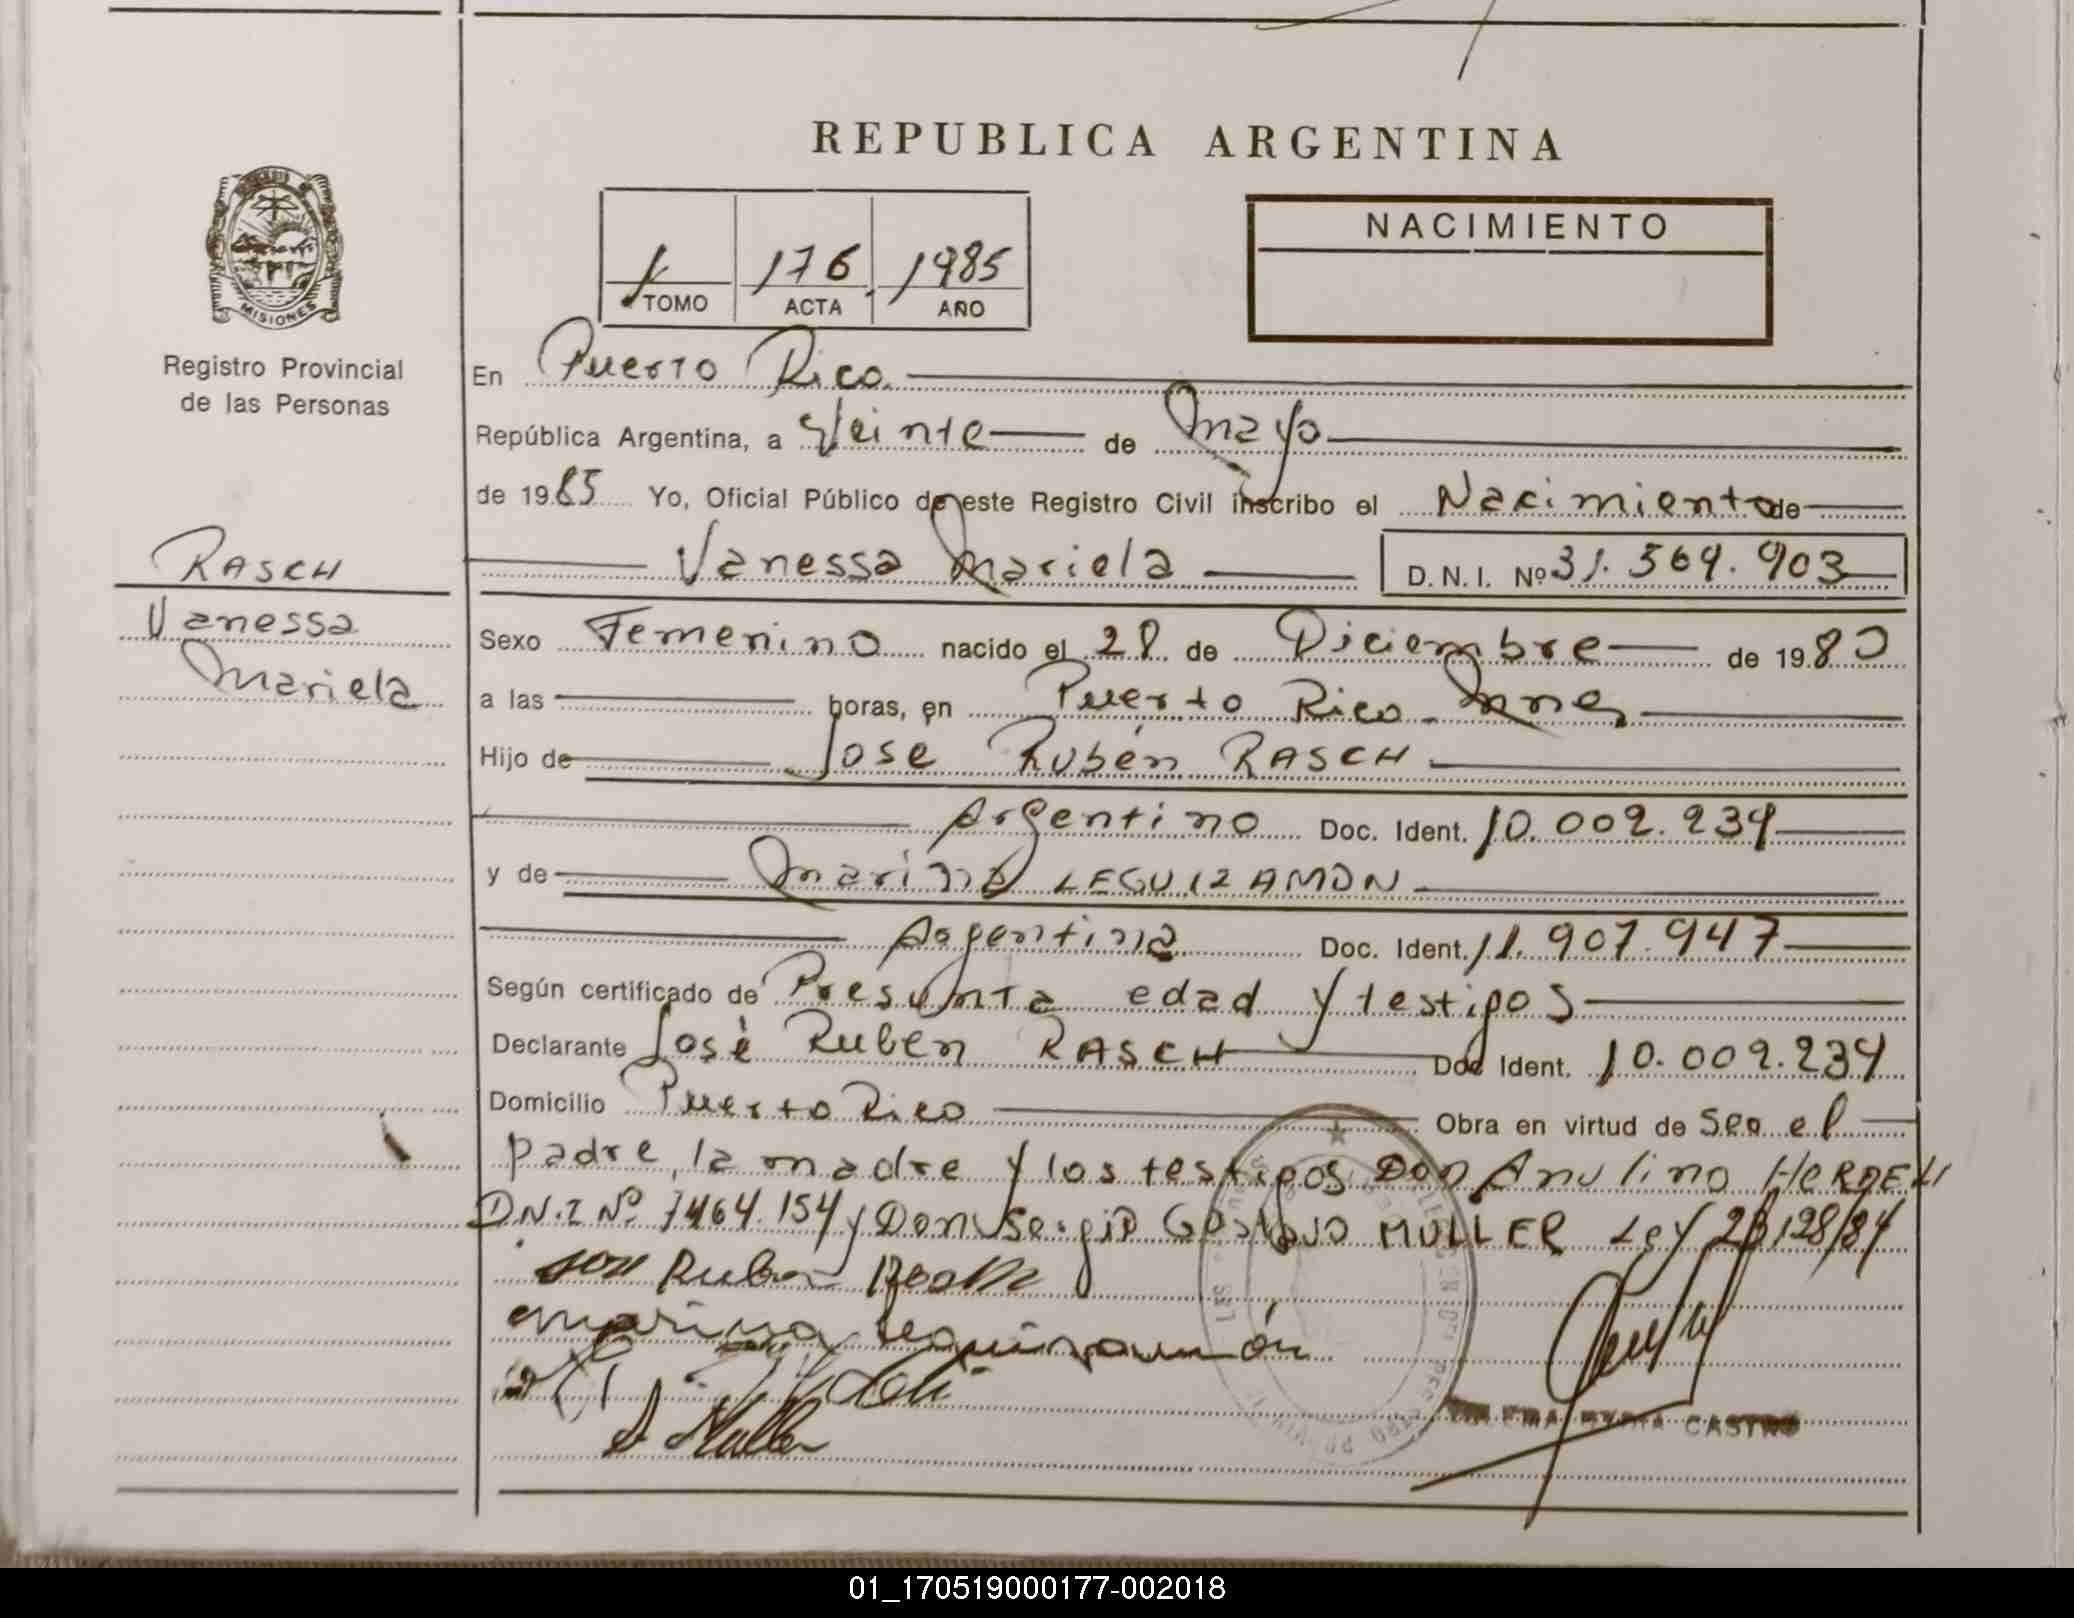 REPUBLICA ARGENTINA
MISIONES
Registro Provincial
de las Personas
1 176 1985
TOMO ACTA AÑO
NACIMIENTO
En Puerto Rico
República Argentina, a Veinte de Mayo
de 1985 Yo, Oficial Público de este Registro Civil inscribo el Nacimiento de
Vanessa Mariela D.N.I. Nº 31.569.903
RASCH
Vanessa
Mariela
Sexo Femenino nacido el 28 de Diciembre de 1980
a las horas, en Puerto Rico Mnes
Hijo de Jose Rubén RASCH
Argentino Doc. Ident. 10.002.234
y de Marina LEGUIZAMON
Argentina Doc. Ident. 11.907.947
Según certificado de Presunta edad y testigos
Declarante José Ruben RASCH Doc Ident. 10.002.234
Domicilio Puerto Rico Obra en virtud de Ser el
padre, la madre y los testigos Don Anulino
D.N.I Nº 7464.154 y Don Sergio Gustavo MULLER Ley 23128/84
Ruben
Marina Leguizamón
CASTRO
01_170519000177-002018